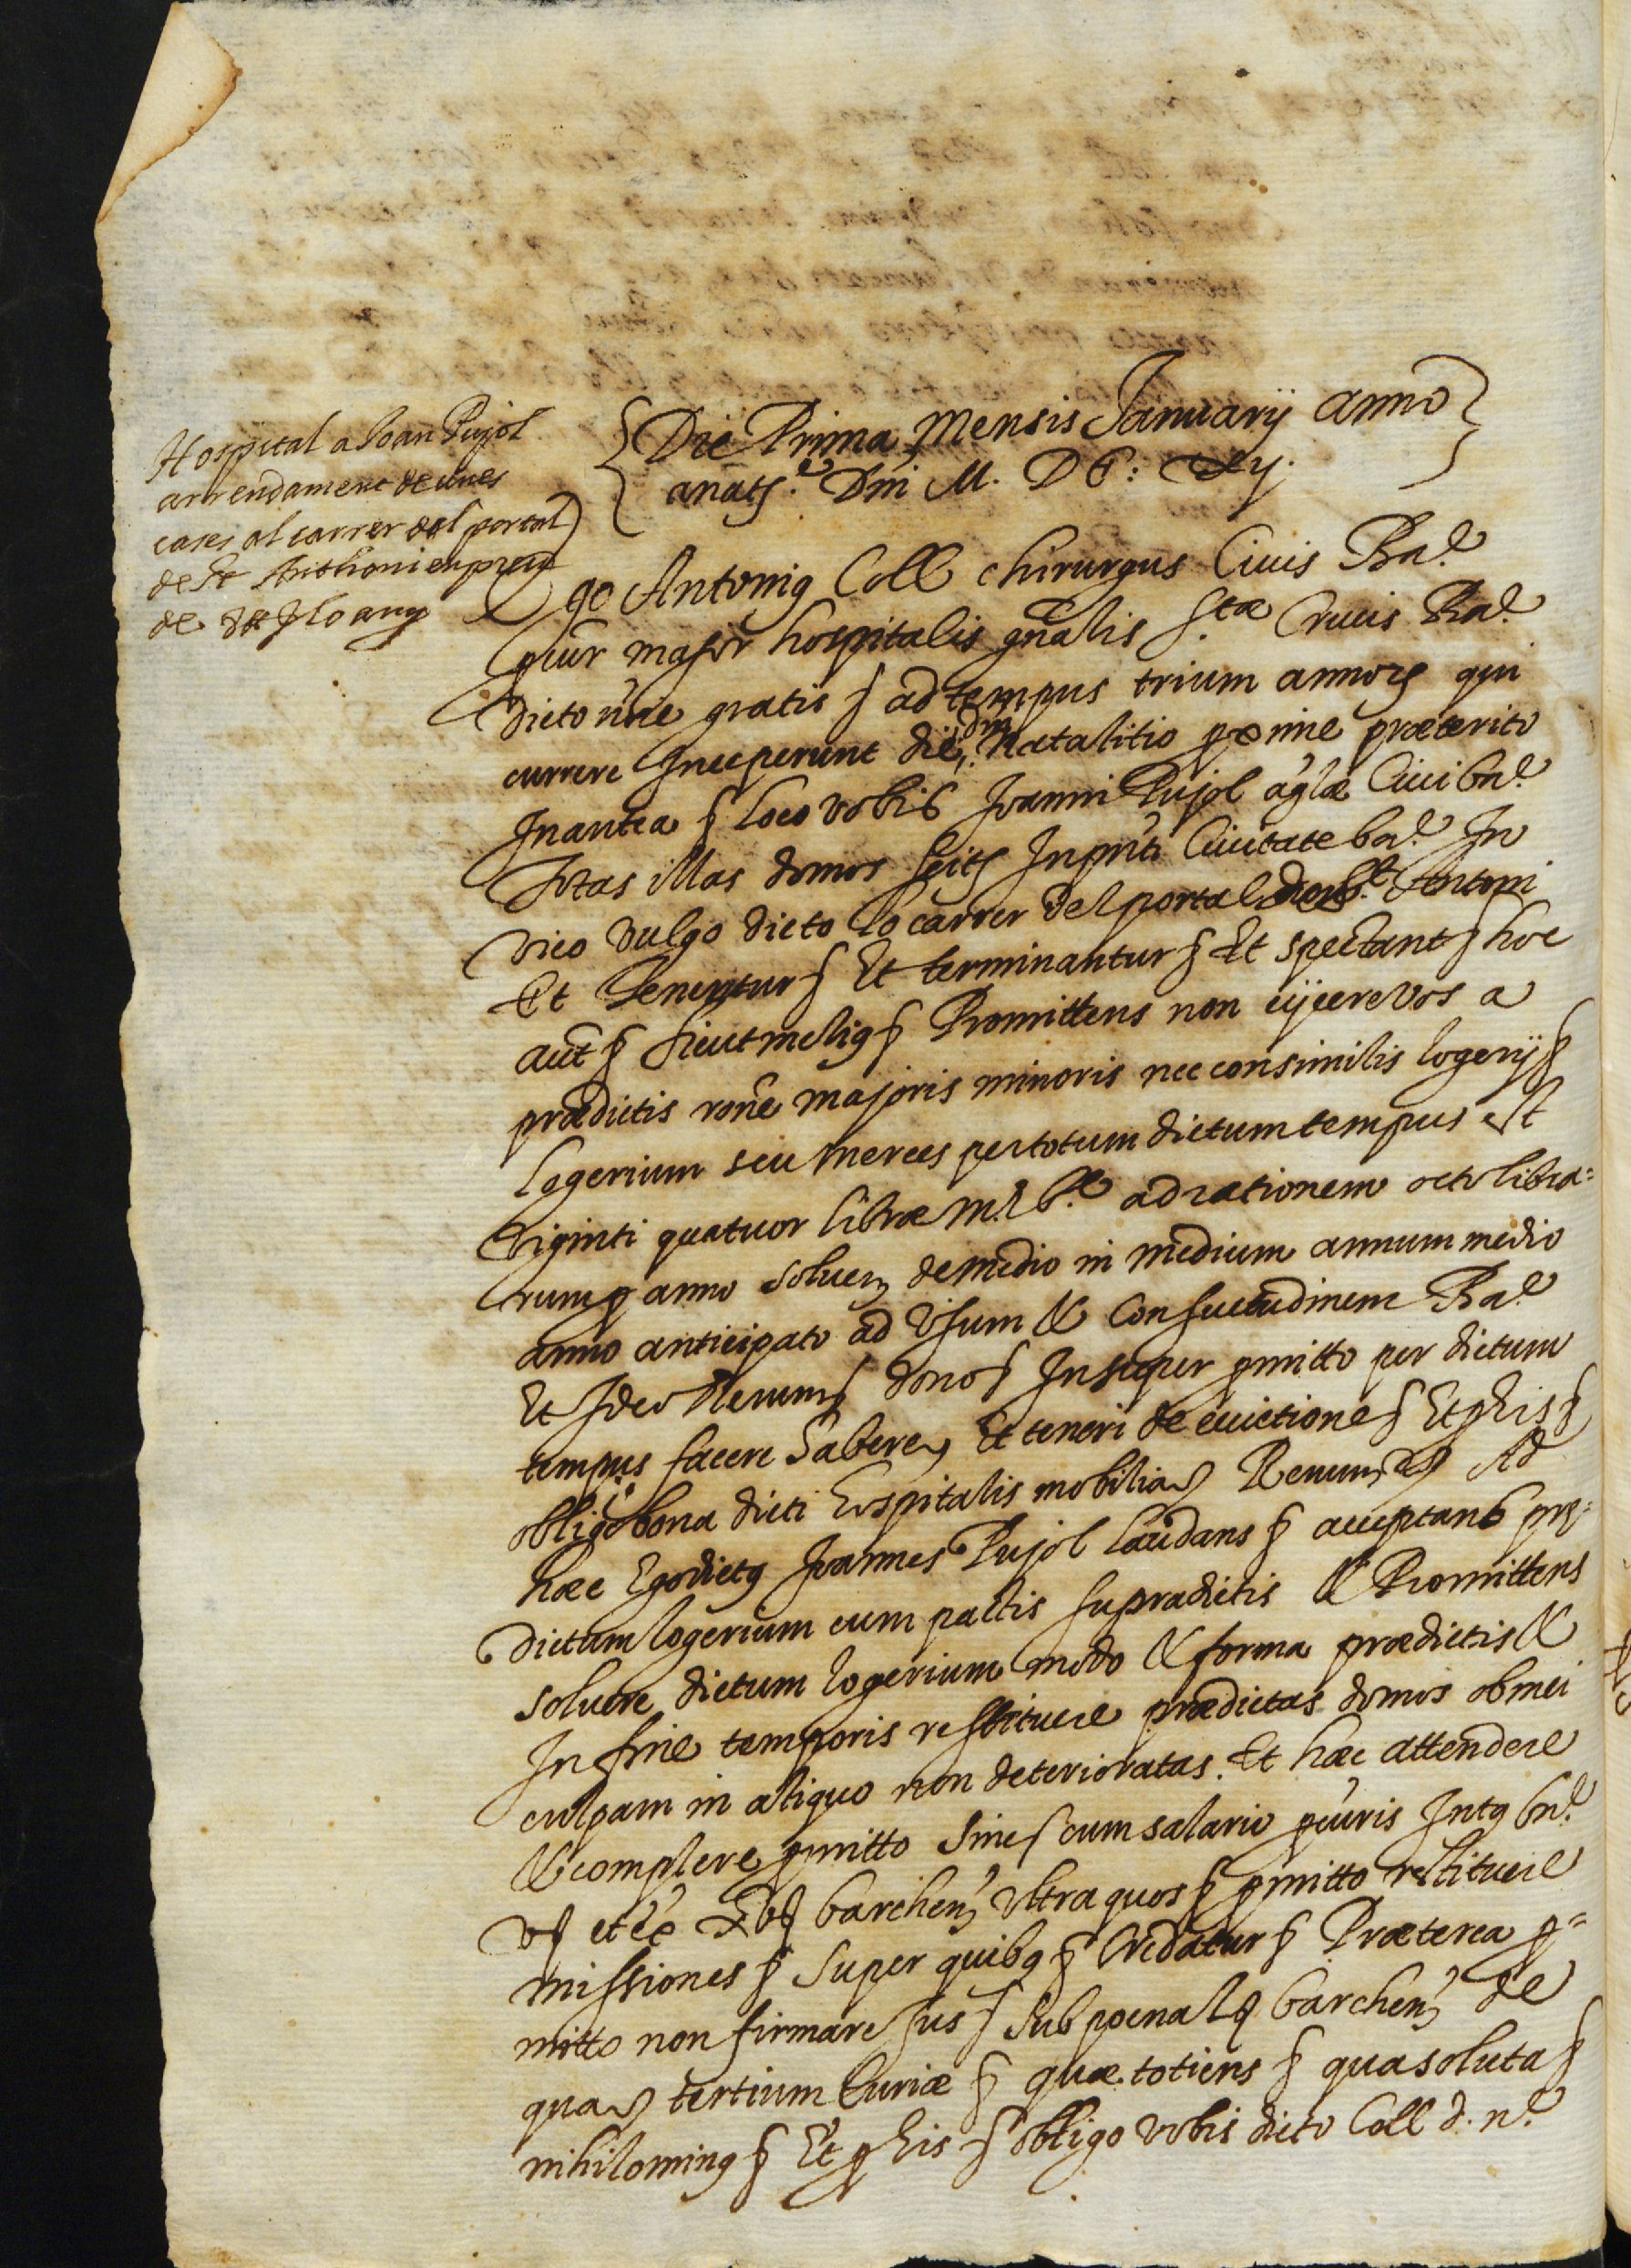 Hospital a Joan Pujol
arrendament de unes
cases al carrer del portal
de St Anthoni en preu
de 24 ll lo any
Die Prima Mensis Januarij anno
a natte. Dni M. DC:
Ego Antonius Coll chirurgus Civis Bare
pcur major hospitalis gnalis Stæ Crucis Bare
Dicto nne gratis § ad tempus trium annorum qui
currere Inceperunt die Dni Natalitio proxime præterito
In antea § loco vobis Joanni Pujol aglæ Civi bne
Totas illas domos scits In pnti Civitate bne In
vico vulgo dicto lo carrer del portal de St Antoni
Et Tenentur § Et terminantur § Et spectant § hoc
aut § sicut melius § Promittens non eijcere vos a
prædictis rone majoris minoris nec consimilis logerij §
logerium seu merces per totum dictum tempus est
Viginti quatuor libræ m. bne ad rationem octo libra=
rum pro anno solven de medio in medium annum medio
anno anticipato ad Usum & Consuetudinem Bare
Et Ideo Renun § dono § Insuper pmitto per dictum
tempus facere habere § Et teneri de evictione § Et p his §
obligo bona dicti hospitalis mobilia § Renun § Ad
hæc Ego dictus Joannes Pujol laudans § acceptans præ=
dictum logerium cum pactis supradictis & Promittens
solvere dictum logerium modo & forma prædictis &
In fine temporis restituere prædictas domos ob mei
culpam in aliquo non deterioratas. Et hæc attendere
& complere pmitto sine § cum salario pcuris Intus bne
v § et ex X s barchen Ultra quos § pmitto restituere
missiones § super quibus § Credatur § Præterea p=
mitto non firmare Jus § sub poena L s barchen de
qua § tertium Curiæ § quæ totiens § qua soluta §
nihilominus § Et p his § obligo vobis dicto Coll d. ne